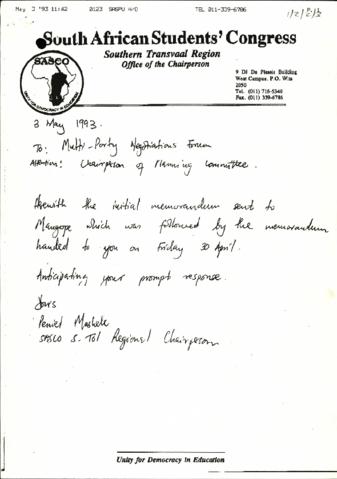 May 3 '93 11:42 0123 SASPU H/O TEL 011-339-6786
1/2/2/2
South African Students' Congress
Southern Transvaal Region
Office of the Chairperson
SASCO
UNITY FOR DEMOCRACY IN EDUCATION
9 DJ Du Plessis Building
West Campus. P.O. Wits
2050
Tel. (011) 716-5340
Fax. (011) 339-6786
3 May 1993.
To: Multi-Party Negotiations Forum
Attention: Chairperson of Planning Committee.
Herewith the initial memorandum sent to
Mangope which was followed by the memorandum
handed to you on Friday 30 April.
Anticipating your prompt response.
Yours
Peniel Mashele
SASCO S. Tvl Regional Chairperson
Unity for Democracy in Education